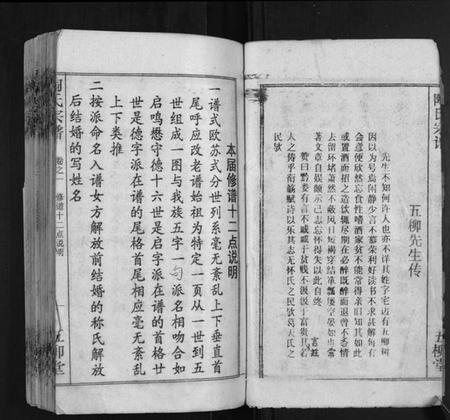 五柳先生传
先生不知何许人也亦不详其姓字宅边有五柳树
因以为号焉闲静少言不慕荣利好读书不求甚解每有
会意便欣然忘食性嗜酒家贫不能常得亲旧知其如此
或置酒而招之造饮辄尽期在必醉既醉而退曾不吝情
去留环堵萧然不蔽风日短褐穿结箪瓢屡空晏如也常
著文章自娱颇示己志忘怀得失以此自终
赞曰黔娄有言不戚戚于贫贱不汲汲于富贵其若言兹
人之俦乎衔觞赋诗以乐其志无怀氏之民欤葛天氏之
民欤
本届修谱十二点说明
一谱式欧苏式分世列系毫无紊乱上下垂直首
尾呼应改老谱始祖为特定一页从一世到五
世组成一图与我族五字一句派名相吻合如
启鸣懋守德十六世是启字派在谱的首格廿
世是德字派在谱的尾格首尾相应毫无紊乱
上下类推
二按派命名入谱女方解放前结婚的称氏解放
后结婚的写姓名
陶氏宗谱
卷之一
修谱十二点说明
五柳堂